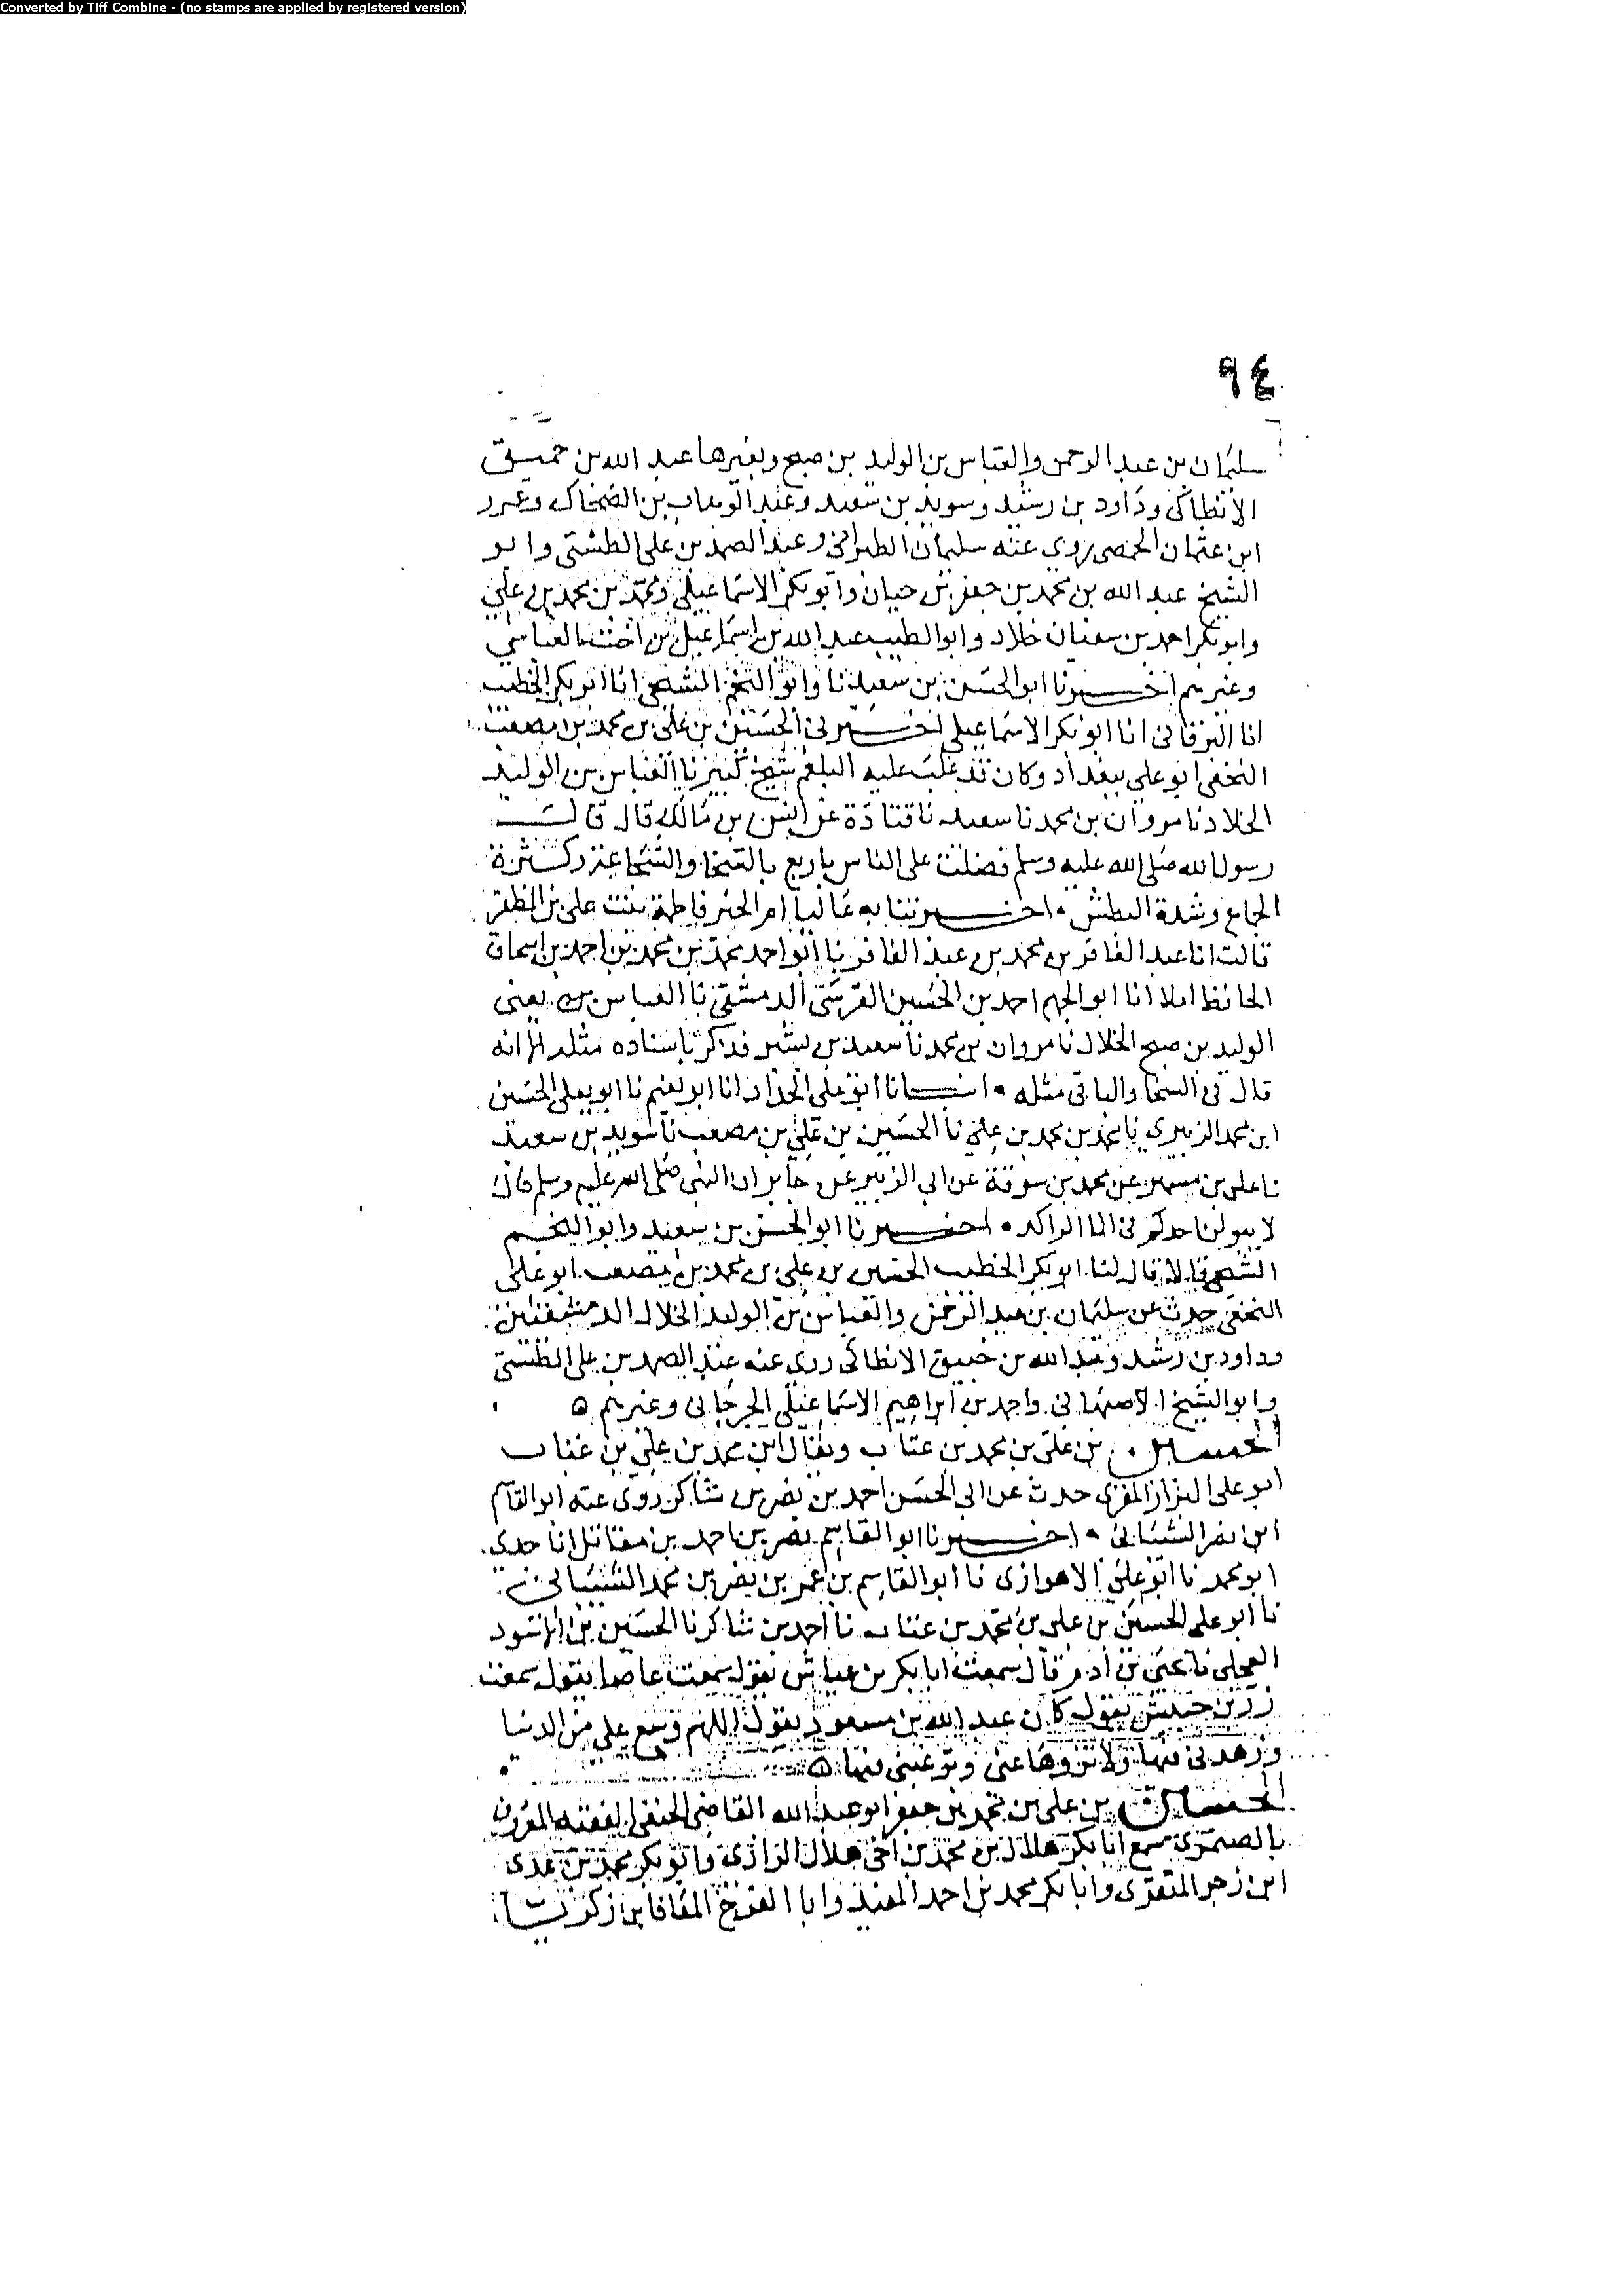 Converted by Tiff Combine - (no stamps are applied by registered version)
٩٤
سليمان بن عبد الرحمن والعباس بن الوليد بن صبح وبغيرها عبد الله بن خبيق
الانطاكي وداود بن رشيد وسويد بن سعيد وعبد الوهاب بن الضحاك وعمرو
ابن عثمان الحمصي روى عنه سليمان الطبراني وعبد الصمد بن علي الطستي وابو
الشيخ عبد الله بن محمد بن جعفر بن حيان وابو بكر الاسماعيلي ومحمد بن محمد بن علي
وابو بكر احمد بن خلاد وابو الطيب عبد الله بن اسماعيل بن اخت العباسي
وغيرهم اخبرنا ابو الحسن بن سعيد نا وابو النجم الشيحي انا ابو بكر الخطيب
انا البرقاني انا ابو بكر الاسماعيلي اخبرني الحسين بن علي بن محمد بن مصعب
النخعي ابو علي ببغداد وكان قد غلب عليه البلغم شيخ كبير نا العباس بن الوليد
الخلال نا مروان بن محمد نا سعيد نا قتادة عن انس بن مالك قال قال
رسول الله صلى الله عليه وسلم فضلت على الناس باربع بالسخا والشجاعة وكثرة
الجماع وشدة البطش اخبرتنا به عاليا ام الخير فاطمة بنت علي بن المظفر
قالت انا عبد الغافر بن محمد بن عبد الغافر نا ابو احمد محمد بن محمد بن احمد بن اسحاق
الحافظ املا انا ابو الجهم احمد بن الحسين القرشي الدمشقي نا العباس يعني
الوليد بن صبح الخلال نا مروان بن محمد نا سعيد بن بشير فذكر باسناده مثله الا انه
قال في السخا والباقي مثله انبانا ابو علي الحداد انا ابو نعيم نا ابو يعلى الحسين
ابن محمد الزبيري نا محمد بن محمد بن علي نا الحسين بن علي بن مصعب نا سويد بن سعيد
نا علي بن مسهر عن محمد بن سوقة عن ابي الزبير عن جابر ان النبي صلى الله عليه وسلم قال
لا يبولن احدكم في الما الراكد اخبرنا ابو الحسن بن سعيد وابو النجم
الشيحي قالا قال لنا ابو بكر الخطيب الحسين بن علي بن محمد بن مصعب ابو علي
النخعي حدث عن سليمان بن عبد الرحمن والعباس بن الوليد الخلال الدمشقيين
وداود بن رشيد وعبد الله بن خبيق الانطاكي روى عنه عبد الصمد بن علي الطستي
وابو الشيخ الاصبهاني واحمد بن ابراهيم الاسماعيلي الجرجاني وغيرهم ه
الحسين بن علي بن محمد بن عتاب ويقال ابن محمد بن علي بن عتاب
ابو علي البزاز المقري حدث عن ابي الحسن احمد بن نصر بن شاكر روى عنه ابو القاسم
ابن نصر الشيباني اخبرنا ابو القاسم نصر بن احمد بن مقاتل انا جدي
ابو محمد نا ابو علي الاهوازي نا ابو القاسم بن عمر بن نصر بن محمد الشيباني
نا ابو علي الحسين بن علي بن محمد بن عتاب نا احمد بن شاكر نا الحسين بن الاسود
العجلي نا يحيى بن ادم قال سمعت ابا بكر بن عياش يقول سمعت عاصما يقول سمعت
زر بن حبيش يقول كان عبد الله بن مسعود يقول اللهم وسع علي من الدنيا
وزهدني فيها ولا تزوها عني وترغبني فيها ه
الحسين بن علي بن محمد بن جعفر ابو عبد الله القاضي الحنفي الفقيه المعروف
بالصيمري سمع ابا بكر هلال بن محمد بن اخي هلال الرازي وابو بكر محمد بن عدي
ابن زحر المنقري وابا بكر محمد بن احمد المفيد وابا الفرج المعافا بن زكريا